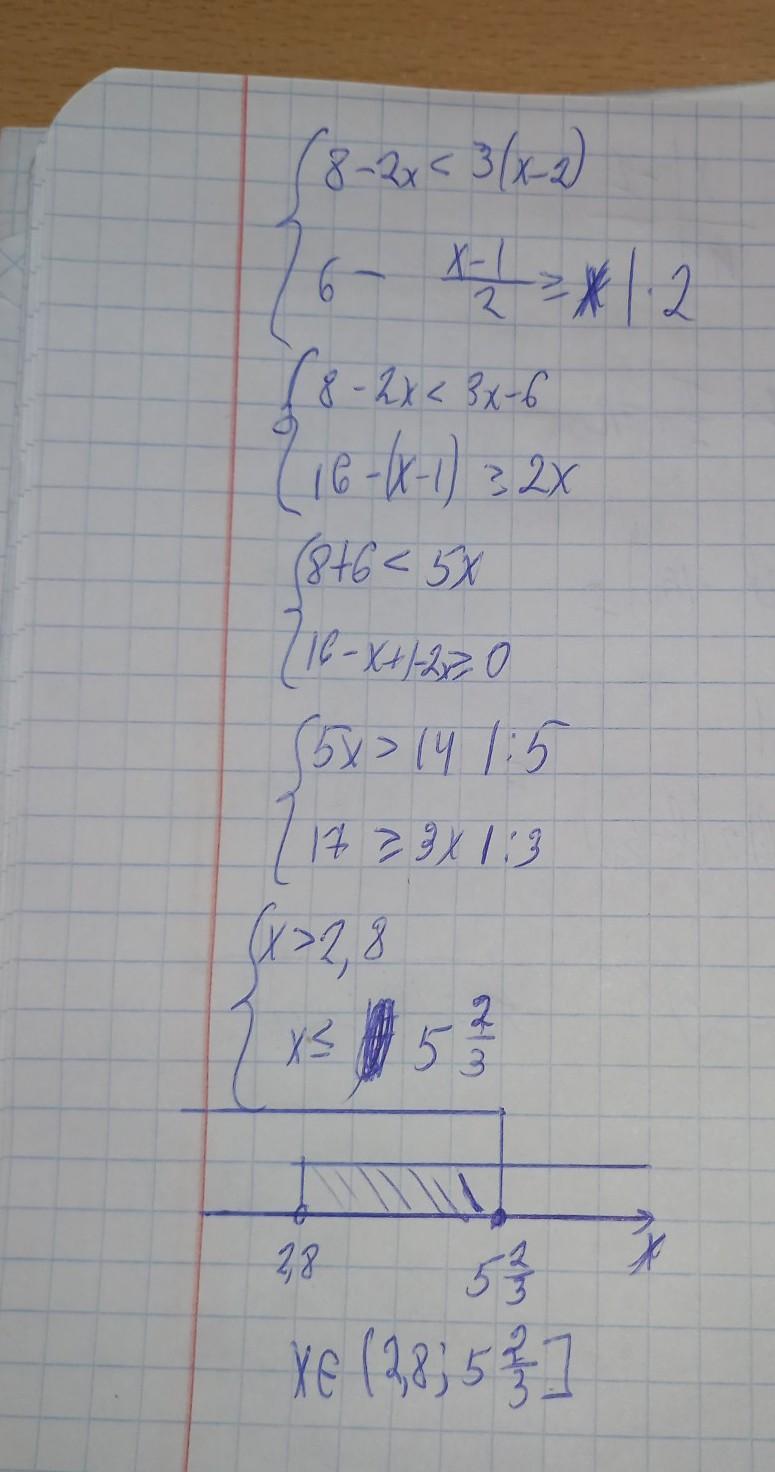 8-2x < 3(x-2)
6 - \frac{x-1}{2} ≥ x | · 2
8-2x < 3x-6
16-(x-1) ≥ 2x
8+6 < 5x
16-x+1-2x ≥ 0
5x > 14 | : 5
17 ≥ 3x | : 3
x > 2,8
x ≤ 5 \frac{2}{3}
2,8 5 \frac{2}{3} x
x ∈ (2,8; 5 \frac{2}{3}]